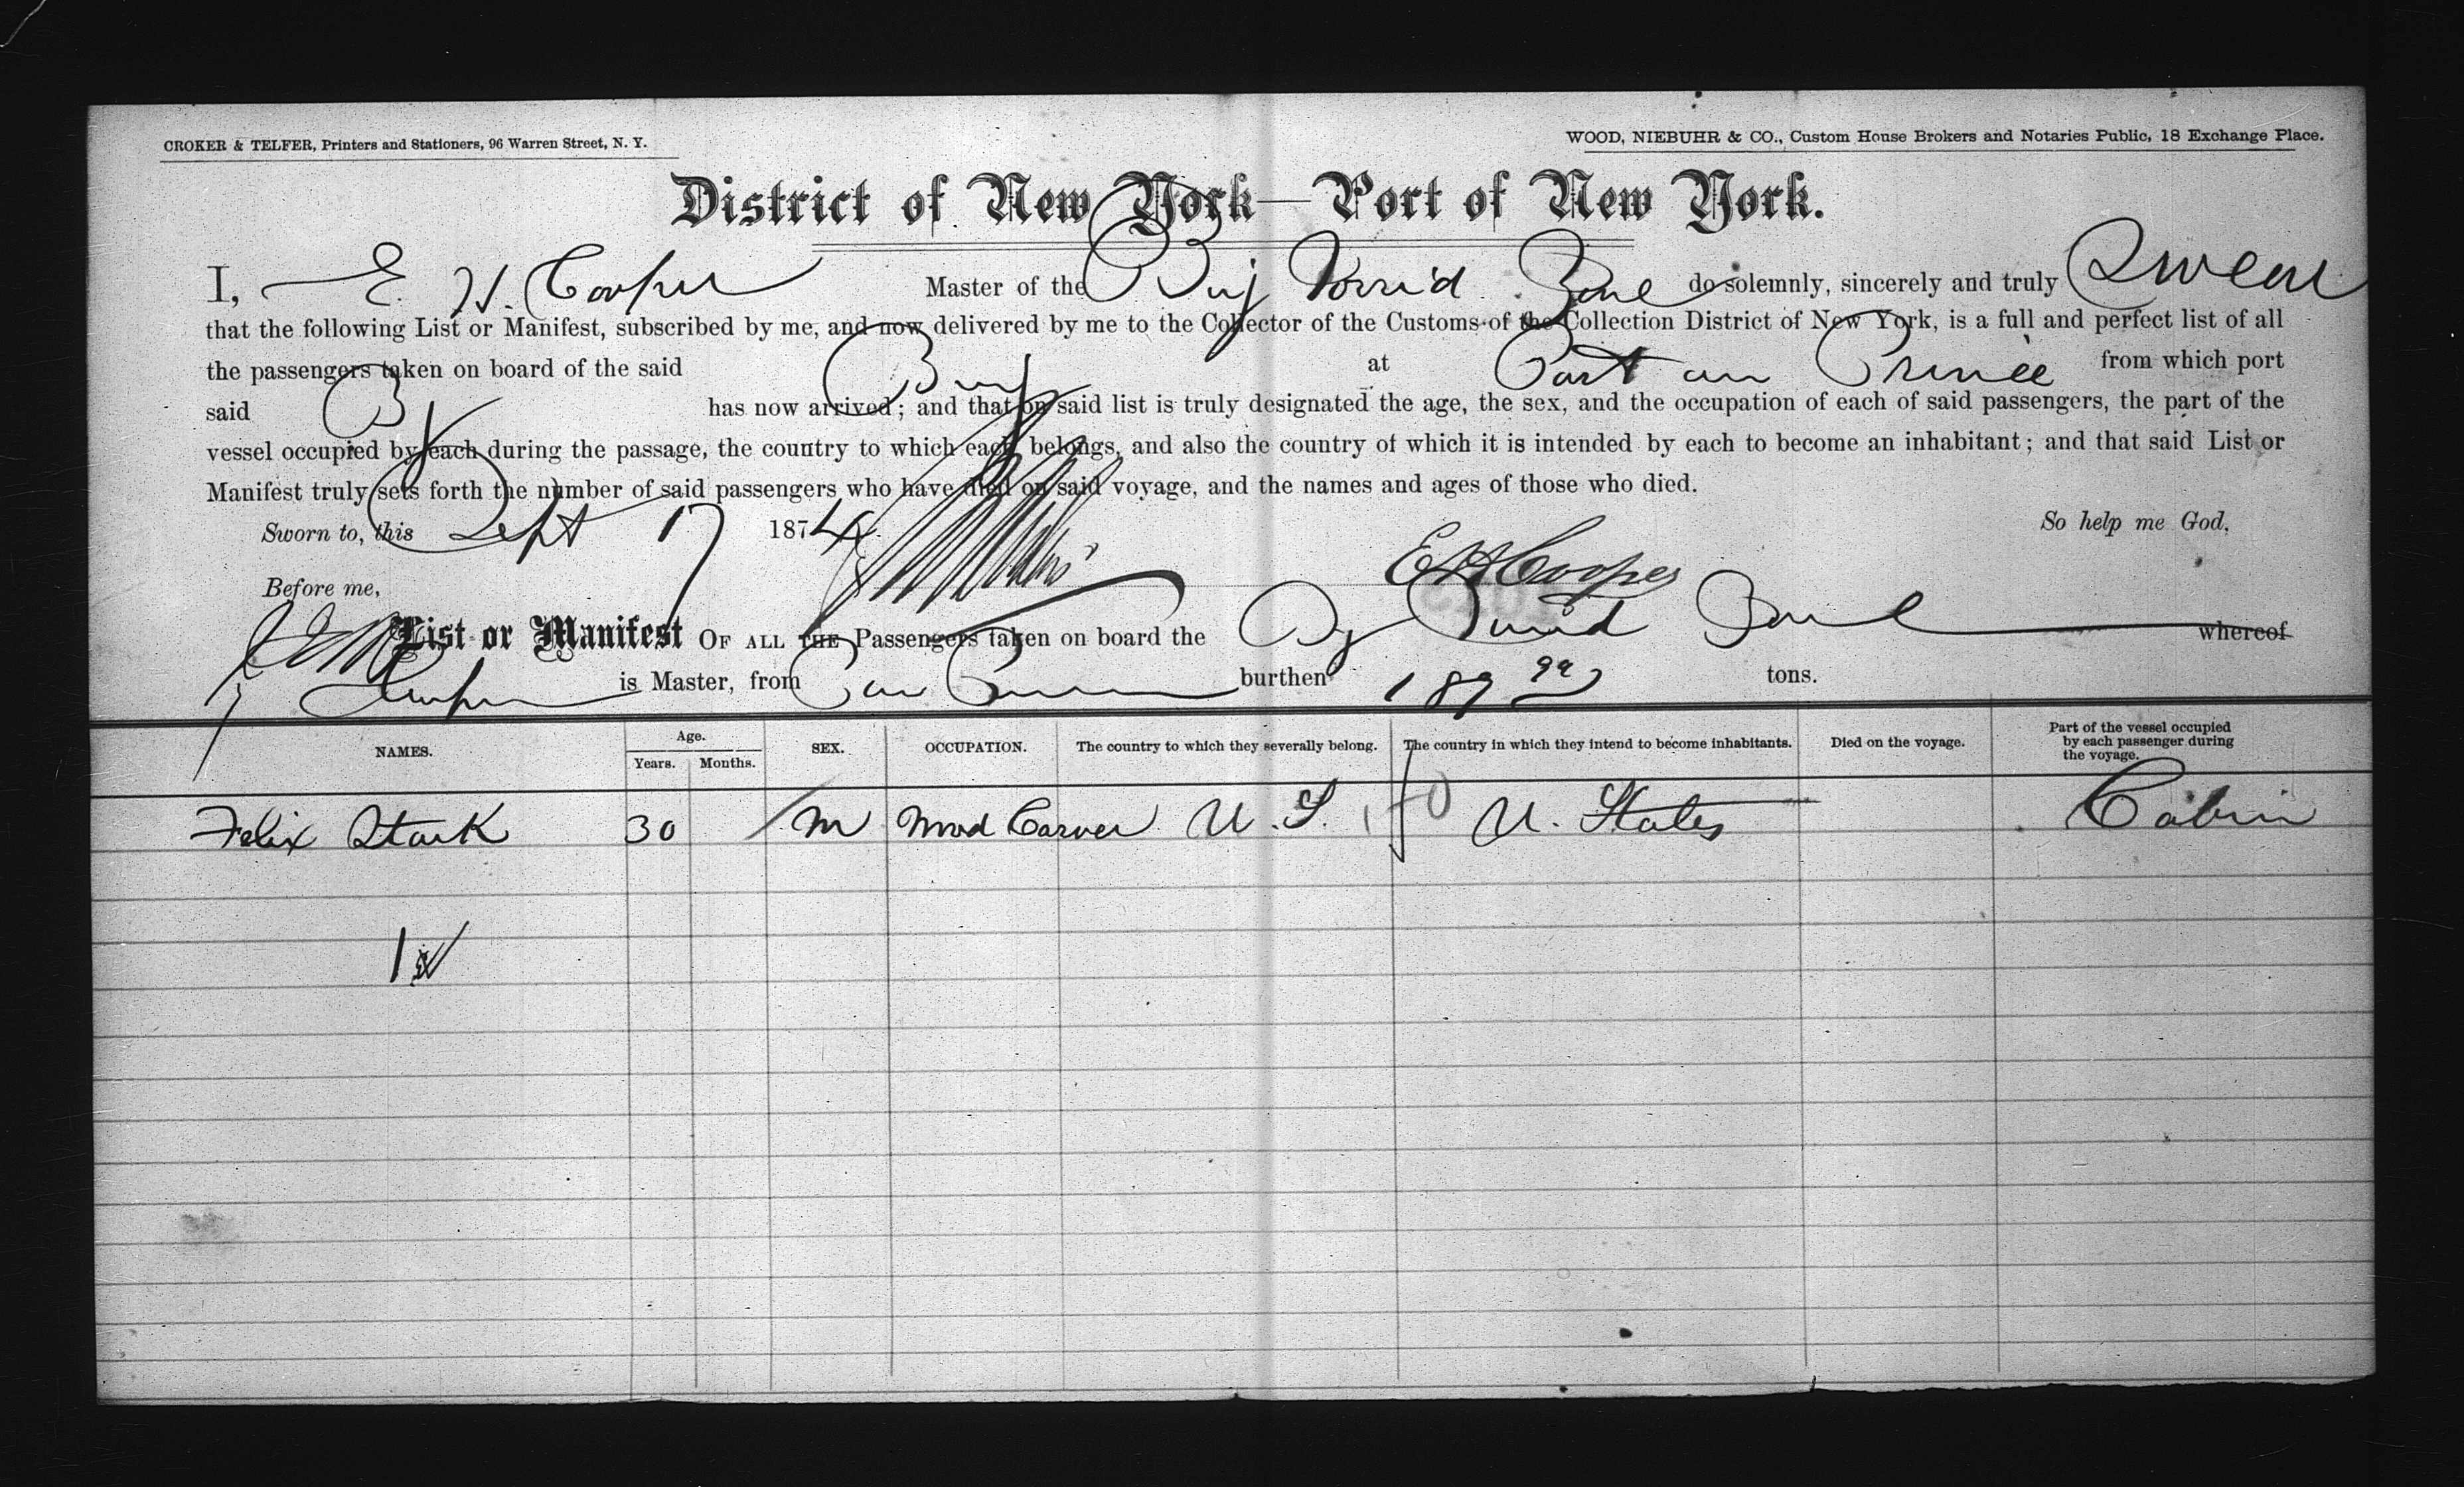 CROKER & TELFER, Printers and Stationers, 96 Warren Street, N. Y.
WOOD, NIEBUHR & CO., Custom House Brokers and Notaries Public, 18 Exchange Place.
District of New York—Port of New York.
I, E. H. Cooper Master of the Brig Torrid Zone do solemnly, sincerely and truly Swear
that the following List or Manifest, subscribed by me, and now delivered by me to the Collector of the Customs of the Collection District of New York, is a full and perfect list of all
the passengers taken on board of the said Brig at Port au Prince from which port
said B has now arrived; and that on said list is truly designated the age, the sex, and the occupation of each of said passengers, the part of the
vessel occupied by each during the passage, the country to which each belongs, and also the country of which it is intended by each to become an inhabitant; and that said List or
Manifest truly sets forth the number of said passengers who have died on said voyage, and the names and ages of those who died.
Sworn to, this Sept 17 1874 So help me God,
Before me, E H Cooper
List or Manifest OF ALL THE Passengers taken on board the Bg Torrid Zone whereof
Cooper is Master, from burthen 189 99 tons.
NAMES. Age. Years. Months. SEX. OCCUPATION. The country to which they severally belong. The country in which they intend to become inhabitants. Died on the voyage. Part of the vessel occupied by each passenger during the voyage.
Felix Stark 30 M Carver U. S. U. States Cabin
1